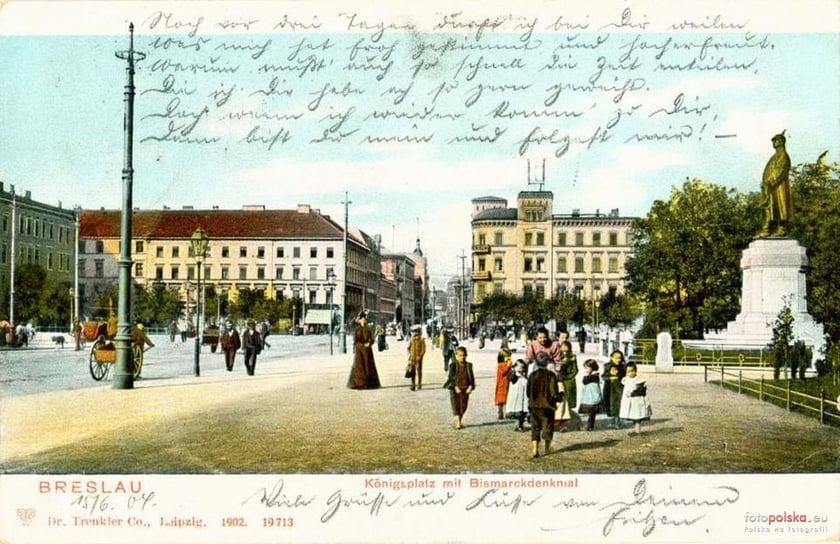 Noch vor drei Tagen durft ich bei Dir weilen
Was mich hat froh gestimmt und hocherfreut.
Warum mußt' auch so schnell die Zeit enteilen,
Die ich Dir habe ach so gern geweiht.
Doch wenn ich wieder komm' zu Dir,
Dann bist du mein und folgest mir! —
BRESLAU
Königsplatz mit Bismarckdenkmal
15/6. 04.
Viele Grüsse und Küsse von Deinem
Dr. Trenkler Co., Leipzig. 1902. 19713
Fritzen.
fotopolska.eu
Polska na fotografii